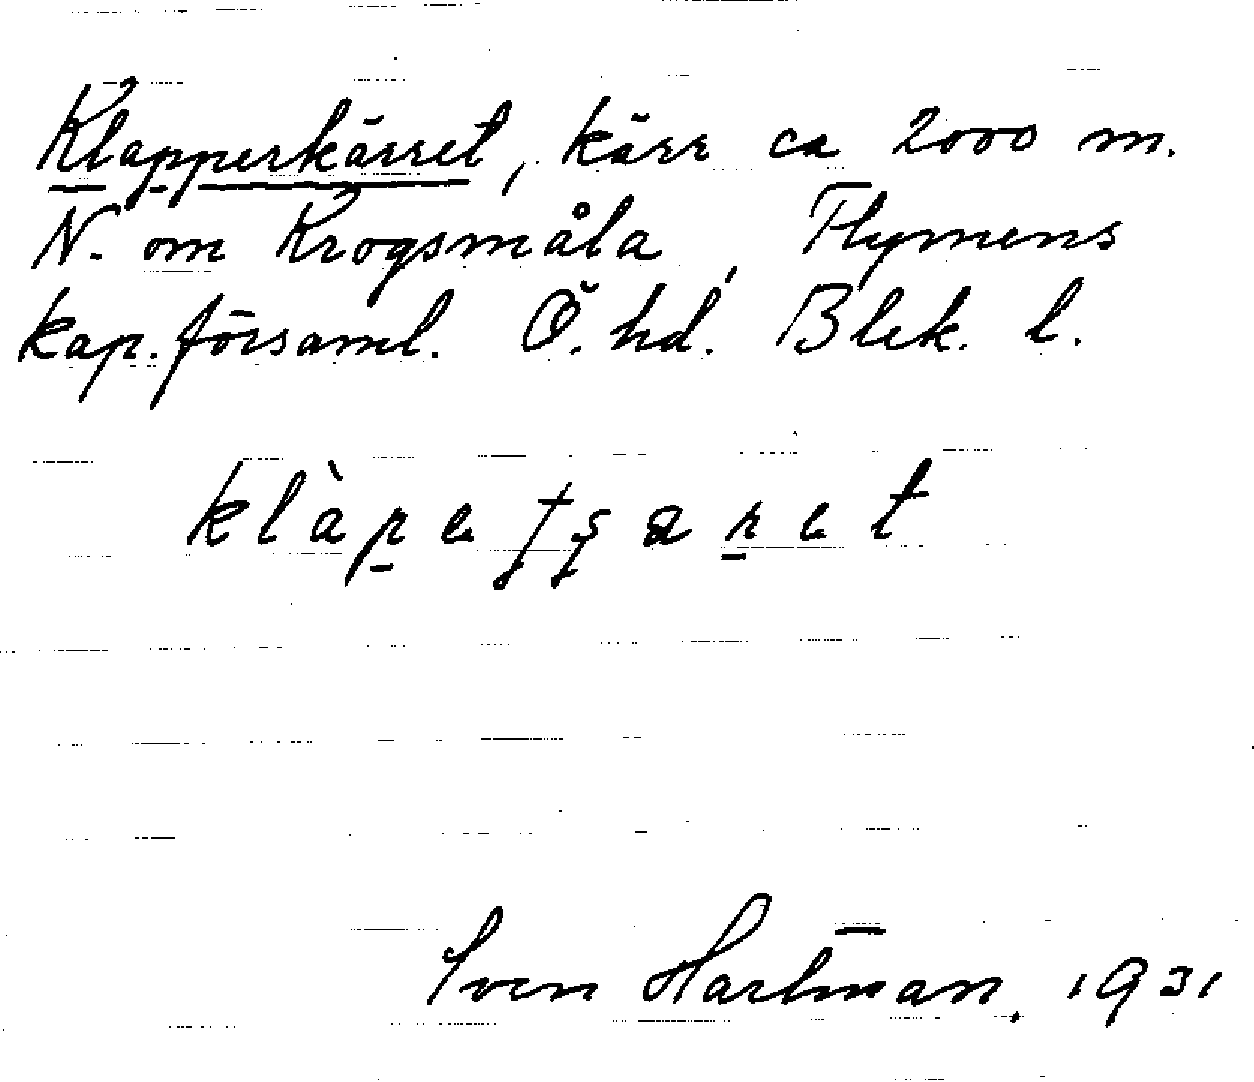 Klapperkärret, kärr ca 2000 m.
N. om Krogsmåla, Flymens
kap.församl. Ö. hd. Blek. l.
Sven Hartman, 1931